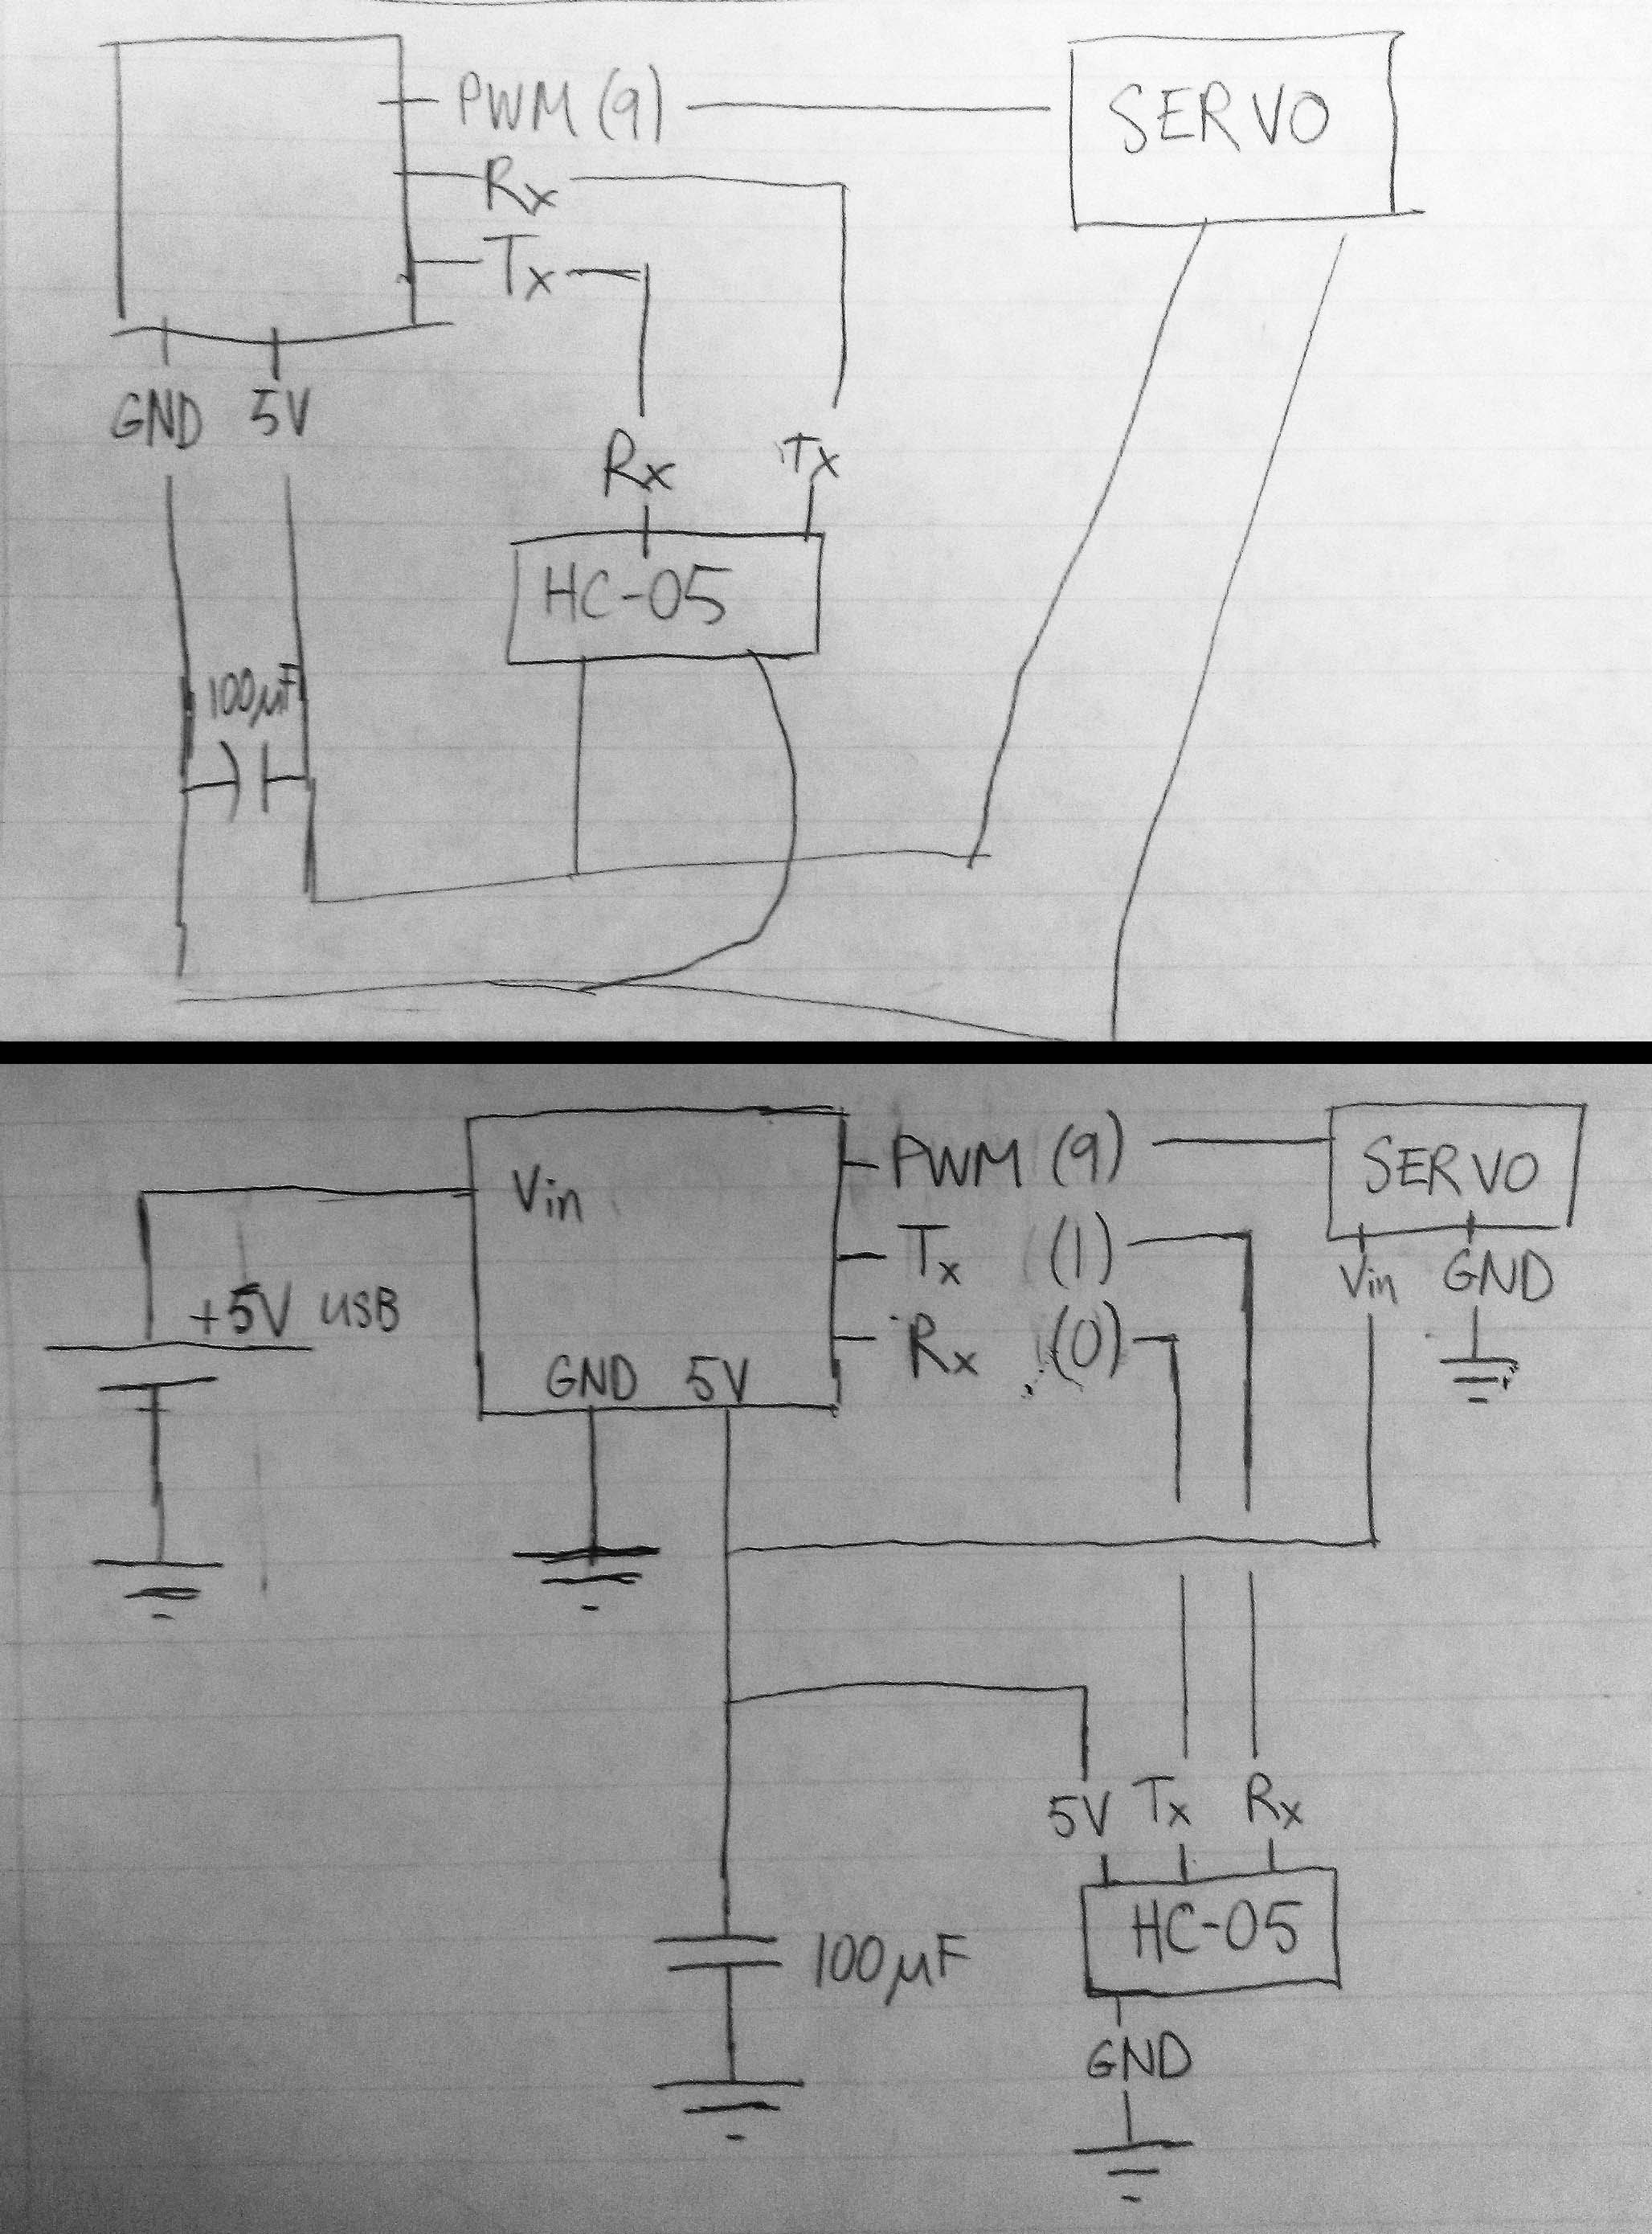 PWM (9)
SERVO
Rx
Tx
GND 5V
Rx Tx
HC-05
100µF
Vin
PWM (9)
SERVO
Tx (1)
Vin GND
+5V USB
Rx (0)
GND 5V
5V Tx Rx
HC-05
100µF
GND